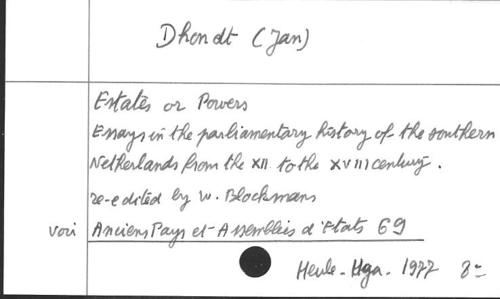 Dhondt (Jan)
Estates or Powers
Essays in the parliamentary history of the southern
Netherlands from the XII to the XVIII century.
re-edited by W. Blockmans
voir Anciens Pays et Assemblées d'Etats 69
Heule - Hga. 1977 8°